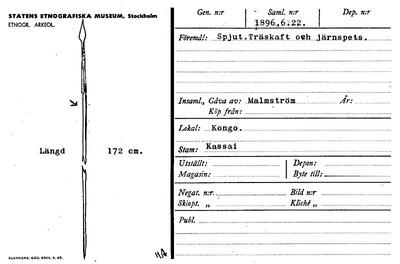 STATENS ETNOGRAFISKA MUSEUM, Stockholm
ETNOGR. ARKEOL.
Längd 172 cm.
HA
Gen. n:r Saml. n:r Dep. n:r
1896.6.22.
Föremål: Spjut.Träskaft och järnspets.
Insaml., Gåva av: Malmström År:
Köp från:
Lokal: Kongo.
Stam: Kassai
Utställt: Depon:
Magasin: Byte till:
Negat. n:r Bild n:r
Skiopt. „ Kliché „
Publ.